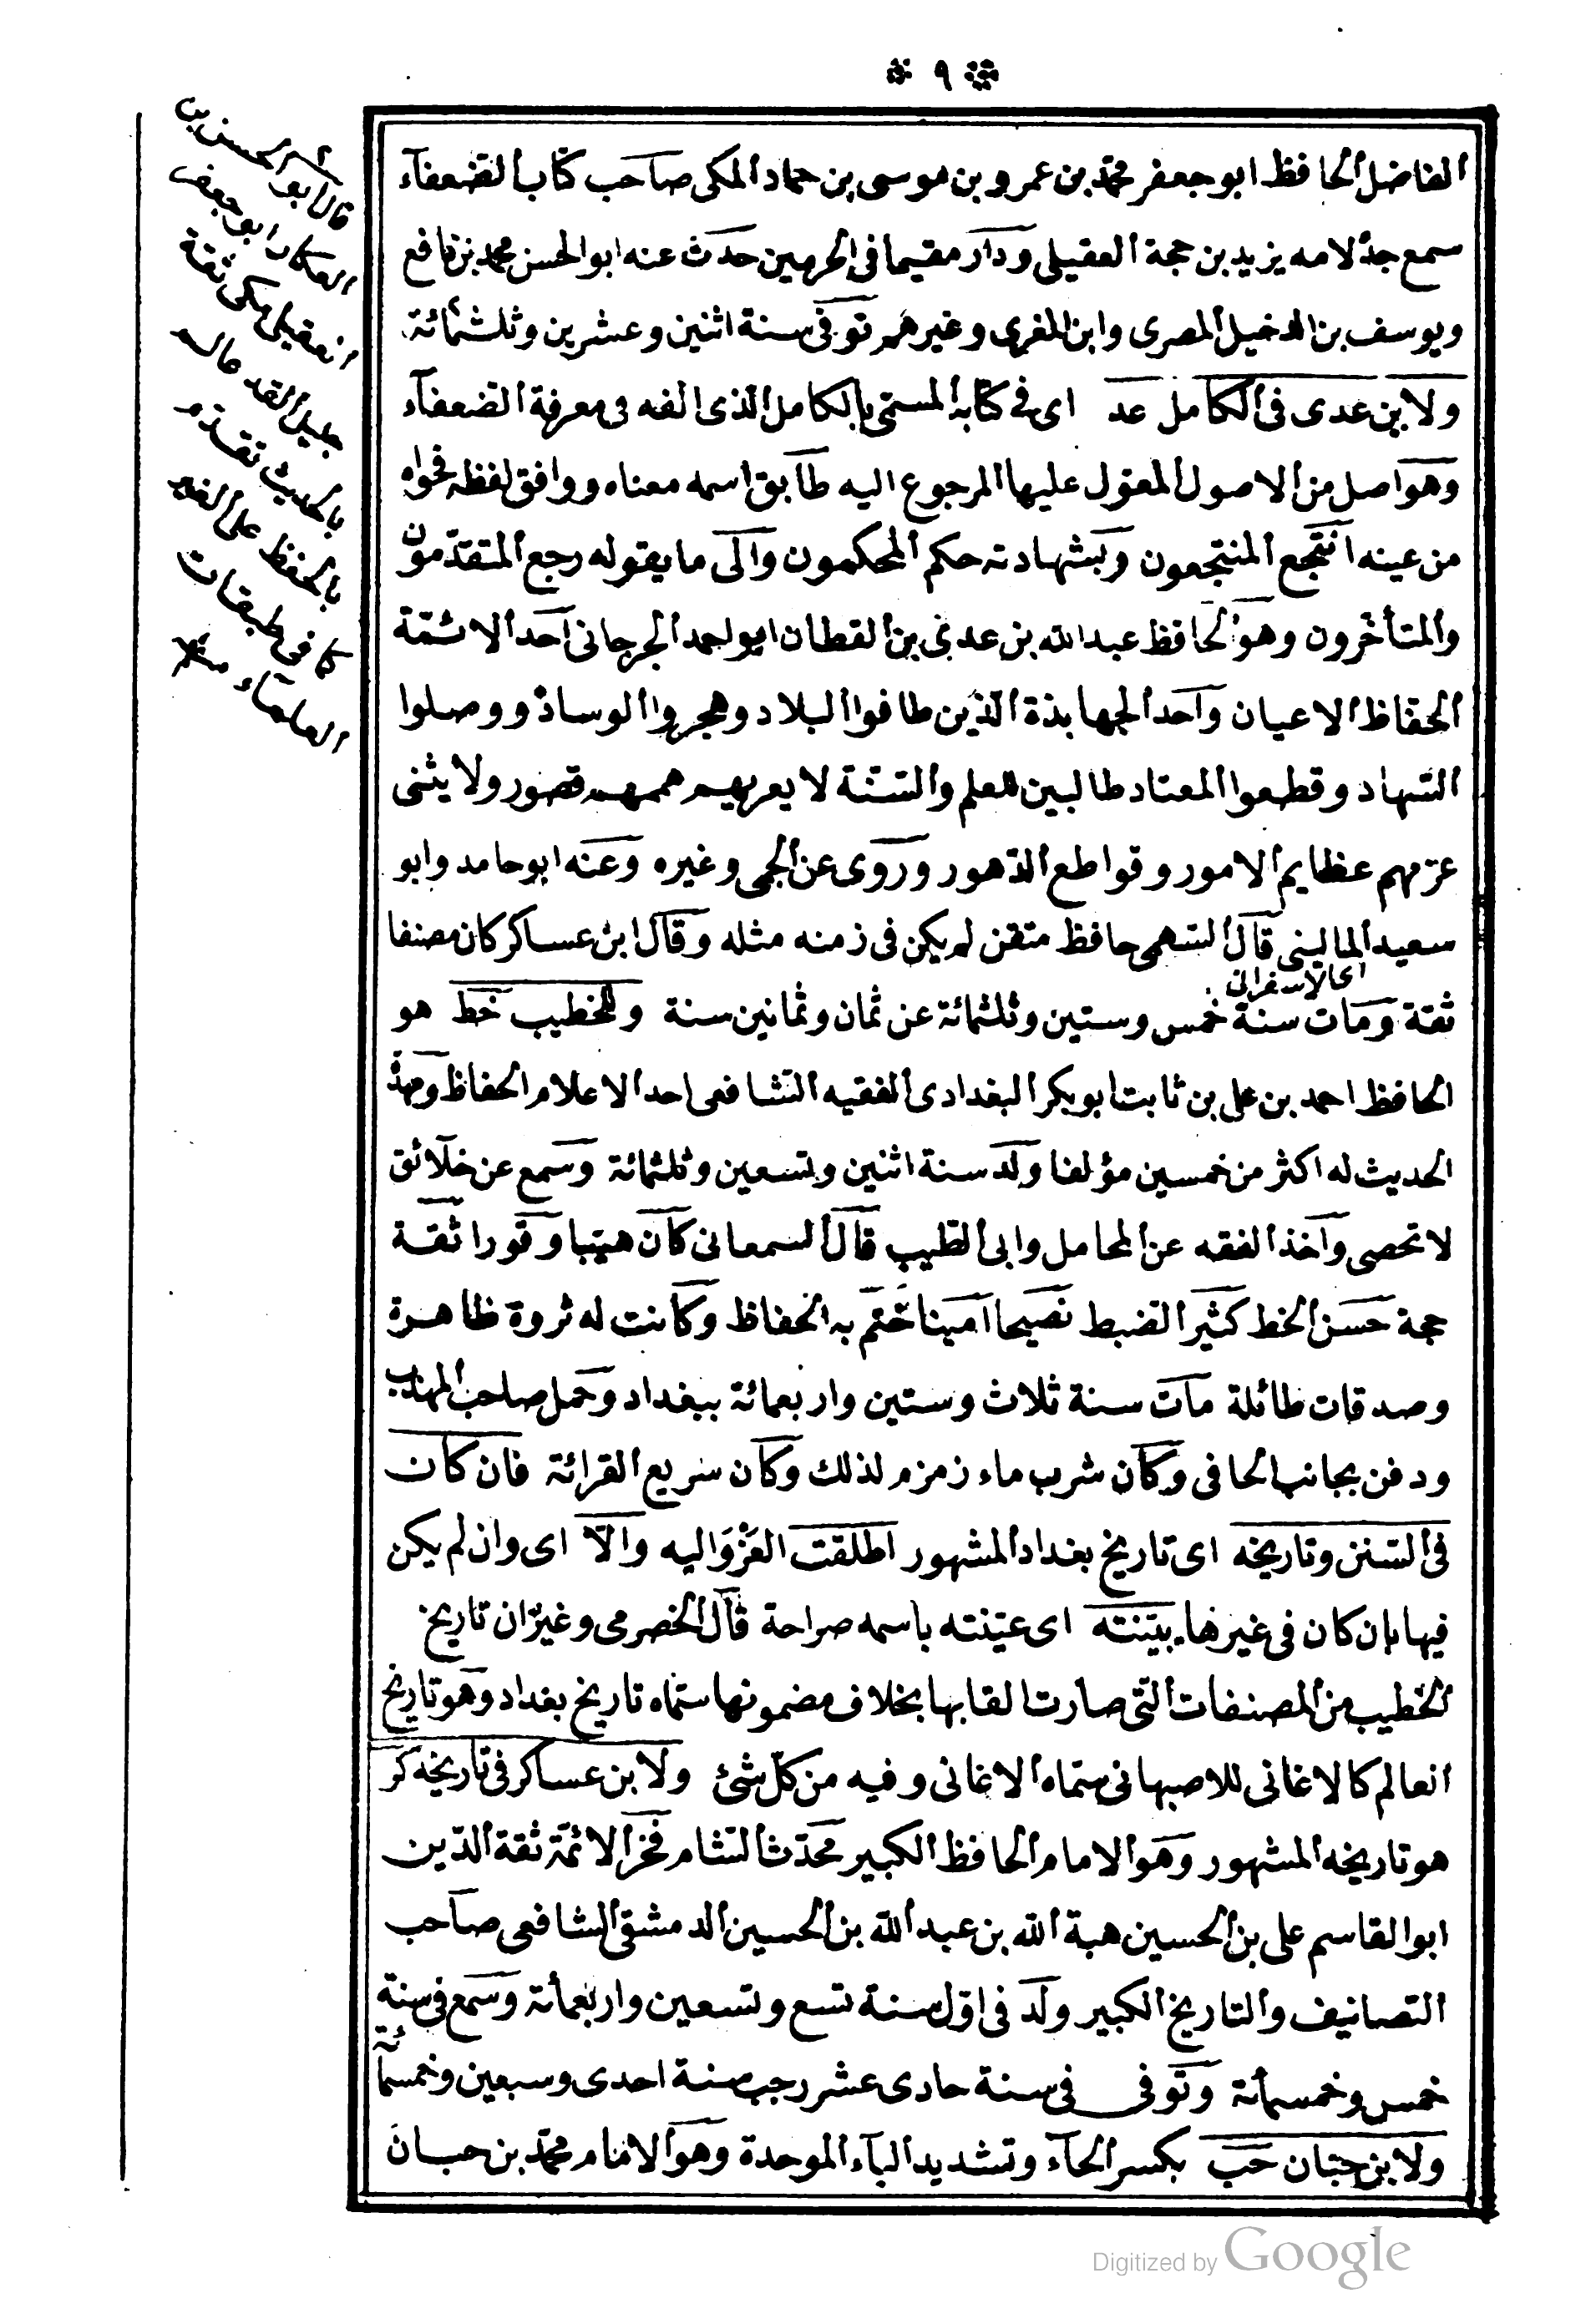 ٩
الفاضل الحافظ ابو جعفر محمد بن عمرو بن موسى بن حماد المكى صاحب كتاب الضعفآء
سمع جده لامه يزيد بن حجة العقيلى ودار مقيما فى الحرمين حدث عنه ابو الحسن محمد بن نافع
ويوسف بن الدخيل المصرى وابن المقرى وغيرهم توفى سنة اثنين وعشرين وثلثمائة
ولابن عدى فى الكامل عد اى فى كتابه المسمى بالكامل الذى الفه فى معرفة الضعفآء
وهو اصل من الاصول المعول عليها المرجوع اليه طابق اسمه معناه ووافق لفظه فحواه
من عينه انتجع المنتجعون وبشهادته حكم المحكمون والى ما يقوله رجع المتقدمون
والمتأخرون وهو الحافظ عبد الله بن عدى بن القطان ابو احمد الجرجانى احد الائمة
الحفاظ الاعيان واحد الجهابذة الذين طافوا البلاد وهجروا الوساد ووصلوا
السهاد وقطعوا المعتاد طالبين للعلم والسنة لا يعريهم هممهم قصور ولا يثنى
عزمهم عظايم الامور وقواطع الدهور وروى عن الجمحى وغيره وعنه ابو حامد وابو
سعيد المالينى قال السهمى حافظ متقن لم يكن فى زمنه مثله وقال ابن عساكر كان مصنفا
اى الاسفرانى
ثقة ومات سنة خمس وستين وثلثمائة عن ثمان وثمانين سنة وللخطيب خط هو
الحافظ احمد بن على بن ثابت ابو بكر البغدادى الفقيه الشافعى احد الاعلام الحفاظ ومهذ
الحديث له اكثر من خمسين مؤلفا ولد سنة اثنين وتسعين وثلثمائة وسمع عن خلائق
لا تحصى واخذ الفقه عن المحامل وابى الطيب قال السمعانى كان هيبا وقورا ثقة
حجة حسن الخط كثير الضبط نصيحا امينا ختم به الحفاظ وكانت له ثروة ظاهرة
وصدقات طائلة مات سنة ثلاث وستين واربعمائة ببغداد وحمل صاحب المهذب
ودفن بجانب الحافى وكان شرب ماء زمزم لذلك وكان سريع القرائة فان كان
فى السنن وتاريخه اى تاريخ بغداد المشهور اطلقت العزو اليه والا اى وان لم يكن
فيها بان كان فى غيرها بينته اى عينته باسمه صراحة قال الخصرمى وغير ان تاريخ
الخطيب من المصنفات التى صارت القابها بخلاف مضمونها سماه تاريخ بغداد وهو تاريخ
العالم كالاغانى للاصبهانى سماه الاغانى وفيه من كل شئ ولابن عساكر فى تاريخه كر
هو تاريخه المشهور وهو الامام الحافظ الكبير محدث الشام فخر الائمة ثقة الدين
ابو القاسم على بن الحسين هبة الله بن عبد الله بن الحسين الدمشقى الشافعى صاحب
التصانيف والتاريخ الكبير ولد فى اول سنة تسع وتسعين واربعمأة وسمع فى سنة
خمس وخمسمأة وتوفى فى سنة حادى عشر رجب سنة احدى وسبعين وخمسمائة
ولابن حبان حب بكسر الحآء وتشديد البآء الموحدة وهو الامام محمد بن حبان
قال ابو الحسن بن
ابو جعفر
العقيلى مكى ثقة
جليل القدر عالم
بالحديث تقدم
بالحفظ على
كما فى طبقات
العلمآء منه
Digitized by Google